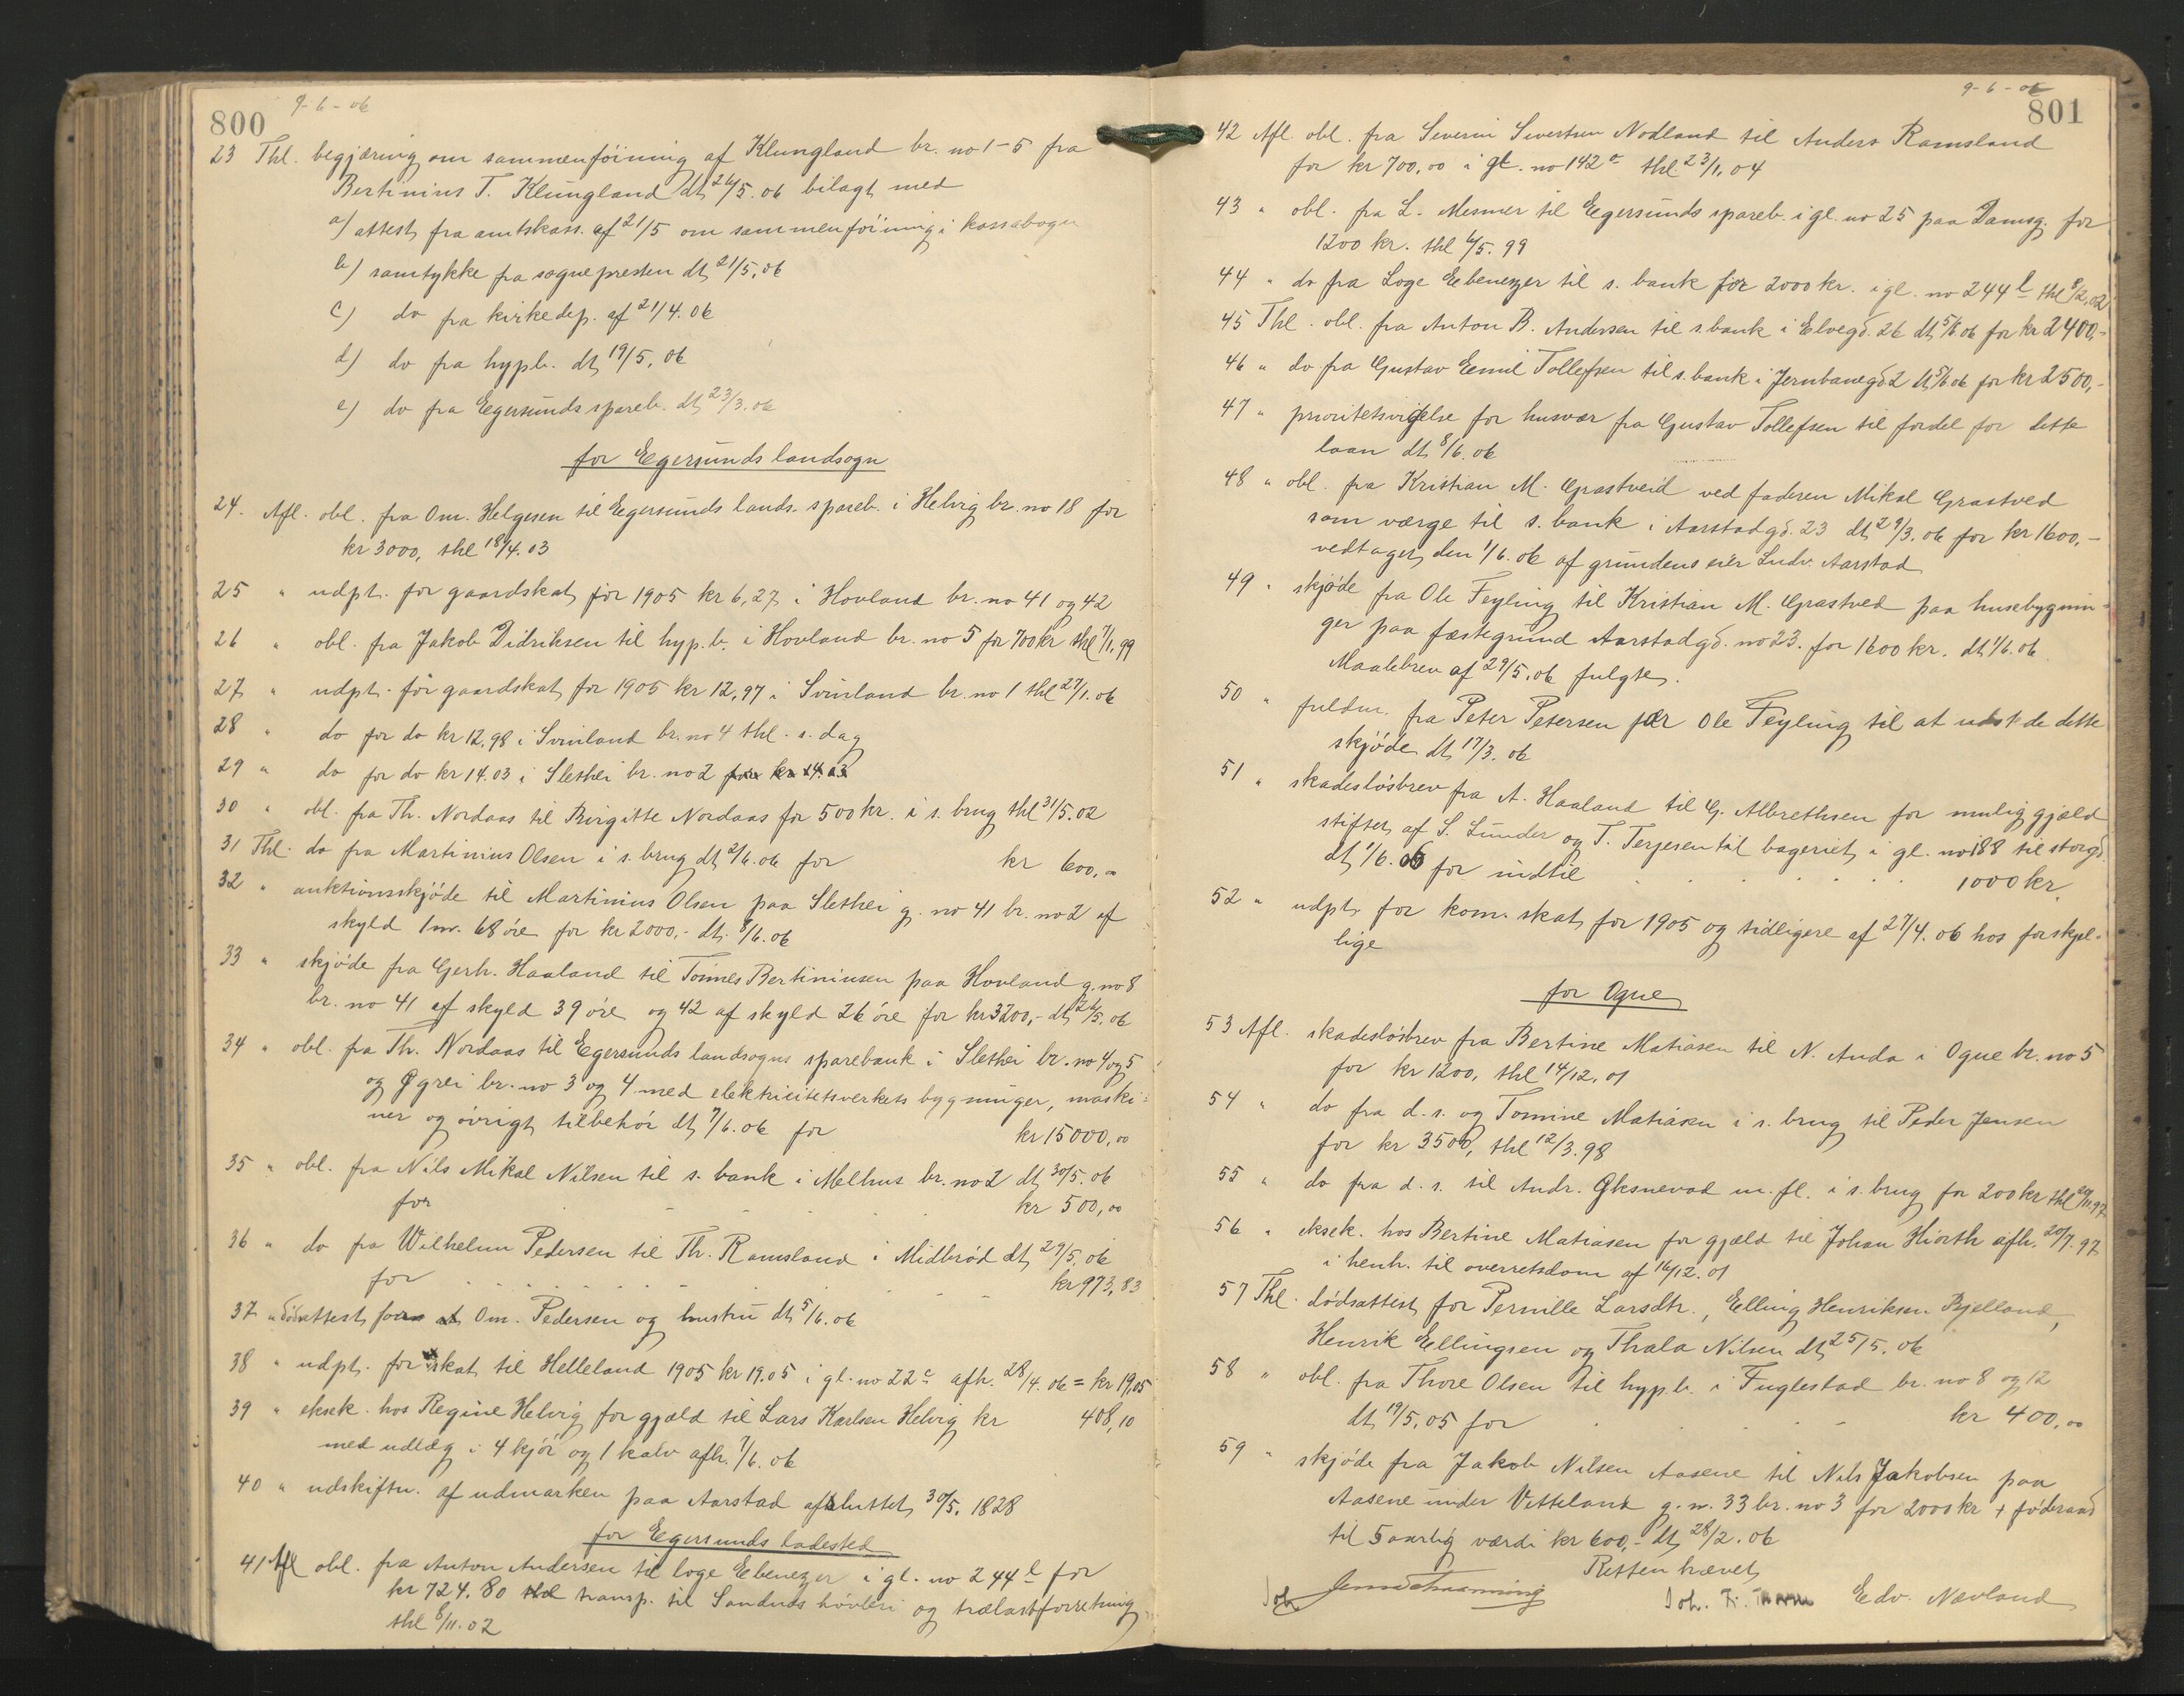 800
9-6-06
23 Thl. begjæring om sammenføining af Klungland br. no 1-5 fra
Bertinius T. Klungland dt. 26/5. 06 bilagt med
a) attest fra amtskass. af 21/5 om sammenføining i kassabogen
b) samtykke fra sognepresten dt. 21/5. 06
c) do fra kirkedep. af 21/4. 06
d) do fra hypb. dt. 19/5. 06
e) do fra Egersunds spareb. dt. 23/3. 06
for Egersunds landsogn
24. Afl. obl. fra Om. Helgesen til Egersunds lands. spareb. i Helvig br. no 18 for
kr 3000, thl 18/4. 03
25 " udpt. for gaardskat for 1905 kr 6,27 i Hovland br. no 41 og 42
26 " obl. fra Jakob Didriksen til hyp. b. i Hovland br. no 5 for 700 kr thl 7/1. 99
27 " udpt. for gaardskat for 1905 kr 12,97 i Svinland br. no 1 thl 27/1. 06
28 " do for do kr 12,98 i Svinland br. no 4 thl. s. dag
29 " do for do kr 14.03 i Slethei br. no 2 for kr 14.03
30 " obl. fra Th. Nordaas til Birgitte Nordaas for 500 kr. i s. brug thl 31/5. 02
31 Thl. do fra Martinius Olsen i s. brug dt. 2/6. 06 for kr 600,00
32 " auktionsskjøde til Martinius Olsen paa Slethei g. no 41 br. no 2 af
skyld 1 m. 68 øre for kr 2000,- dt. 8/6. 06
33 " skjøde fra Gerh. Haaland til Tønnes Bertiniusen paa Hovland g. no 8
br. no 41 af skyld 39 øre og 42 af skyld 26 øre for kr 3200,- dt. 26/5. 06
34 " obl. fra Th. Nordaas til Egersunds landsogns sparebank i Slethei br. no 4 og 5
og Øgrei br. no 3 og 4 med elektricitetsverkets bygninger, maski-
ner og øvrigt tilbehør dt. 7/6. 06 for kr 15000,00
35 " obl. fra Nils Mikal Nilsen til s. bank i Melhus br. no 2 dt. 30/5. 06
for kr 500,00
36 " do fra Wilhelm Pedersen til Th. Ramsland i Midbrød dt. 29/5. 06
for kr 973,83
37 " dødsattest for Om. Pedersen og hustru dt. 5/6. 06
38 " udpt. for skat til Helleland 1905 kr 19.05 i gl. no 22c afh. 28/4. 06 = kr 19,05
39 " eksek. hos Regine Helvig for gjæld til Lars Karlsen Helvig kr 408,10
med udlæg i 4 kjør og 1 kalv afh. 7/6. 06
40 " udskiftn. af udmarken paa Aarstad afsluttet 30/5. 1828
for Egersunds ladested
41 Afl obl. fra Anton Andersen til loge Ebenezer i gl. no 244 l for
kr 724. 80 thl transp. til Sandnds høvleri og trælastforretning
thl 8/11. 02
9-6-06
801
42 Afl. obl. fra Severin Sivertsen Nodland til Anders Ramsland
for kr 700,00 i gl. no 142 a thl. 23/1. 04
43 " obl. fra L. Mesmer til Egersunds spareb. i gl. no 25 paa Damsg. for
1200 kr. thl 6/5. 99
44 " do fra Loge Ebenezer til s. bank for 2000 kr. i gl. no 244 l thl 8/2. 02
45 Thl. obl. fra Anton B. Andersen til s. bank i Elvegd. 26 dt. 5/6 06 for kr 2400,-
46 " do fra Gustav Emil Tollefsen til s. bank i Jernbanegd 2 dt. 5/6 06 for kr 2500,-
47 " prioritetsvigelse for husvær fra Gustav Tollefsen til fordel for dette
laan dt. 8/6. 06
48 " obl. fra Kristian M. Grastveid ved faderen Mikal Grastved
som værge til s. bank i Aarstadgd. 23 dt. 29/3. 06 for kr 1600,-
vedtaget den 1/6. 06 af grundens eier Ludv. Aarstad
49 " skjøde fra Ole Feyling til Kristian M. Grastved paa husebygnin-
ger paa fæstegrund Aarstadgd. no 23. for 1600 kr. dt. 1/6. 06
Maalebrev af 29/5. 06 fulgte.
50 " fuldm. fra Peter Petersen for Ole Feyling til at udst de dette
skjøde dt. 17/3. 06
51 " skadesløsbrev fra A. Haaland til G. Albrethsen for mulig gjæld
stiftet af S. Sunder og T. Terjesen til bageriet i gl. no 188 til storgd.
dt. 1/6. 06 for indtil 1000 kr
52 " udpt. for kom. skat for 1905 og tidligere af 27/4. 06 hos forskjel-
lige
for Ogne
53 Afl. skadesløsbrev fra Bertine Matiasen til N. Anda i Ogne br. no 5
for kr 1200, thl 14/12. 01
54 " do fra d. s. og Tomine Matiasen i s. brug til Peder Jensen
for kr 3500, thl 12/3. 98
55 " do fra d. s. til Andr. Øksnevad m. fl. i s. brug for 200 kr thl 20/11. 97
56 " eksek. hos Bertine Matiasen for gjæld til Johan Hiorth afh. 20/7. 97
i henh. til overretsdom af 16/12. 01
57 Thl. dødsattest for Pernille Larsdtr., Elling Henriksen Bjelland,
Henrik Ellingsen og Thala Nilsen dt. 25/5. 06
58 " obl. fra Thore Olsen til hyp. b. i Fuglestad br. no 8 og 12
dt. 19/5. 05 for kr 400,00
59 " skjøde fra Jakob Nilsen Aasene til Nils Jakobsen paa
Aasene under Vetteland g. n. 33 br. no 3 for 2000 kr + føderaad
til 5 aarlig værdi kr 600,- dt. 28/2. 06
Retten hævet
Joh. Edv. Nævland